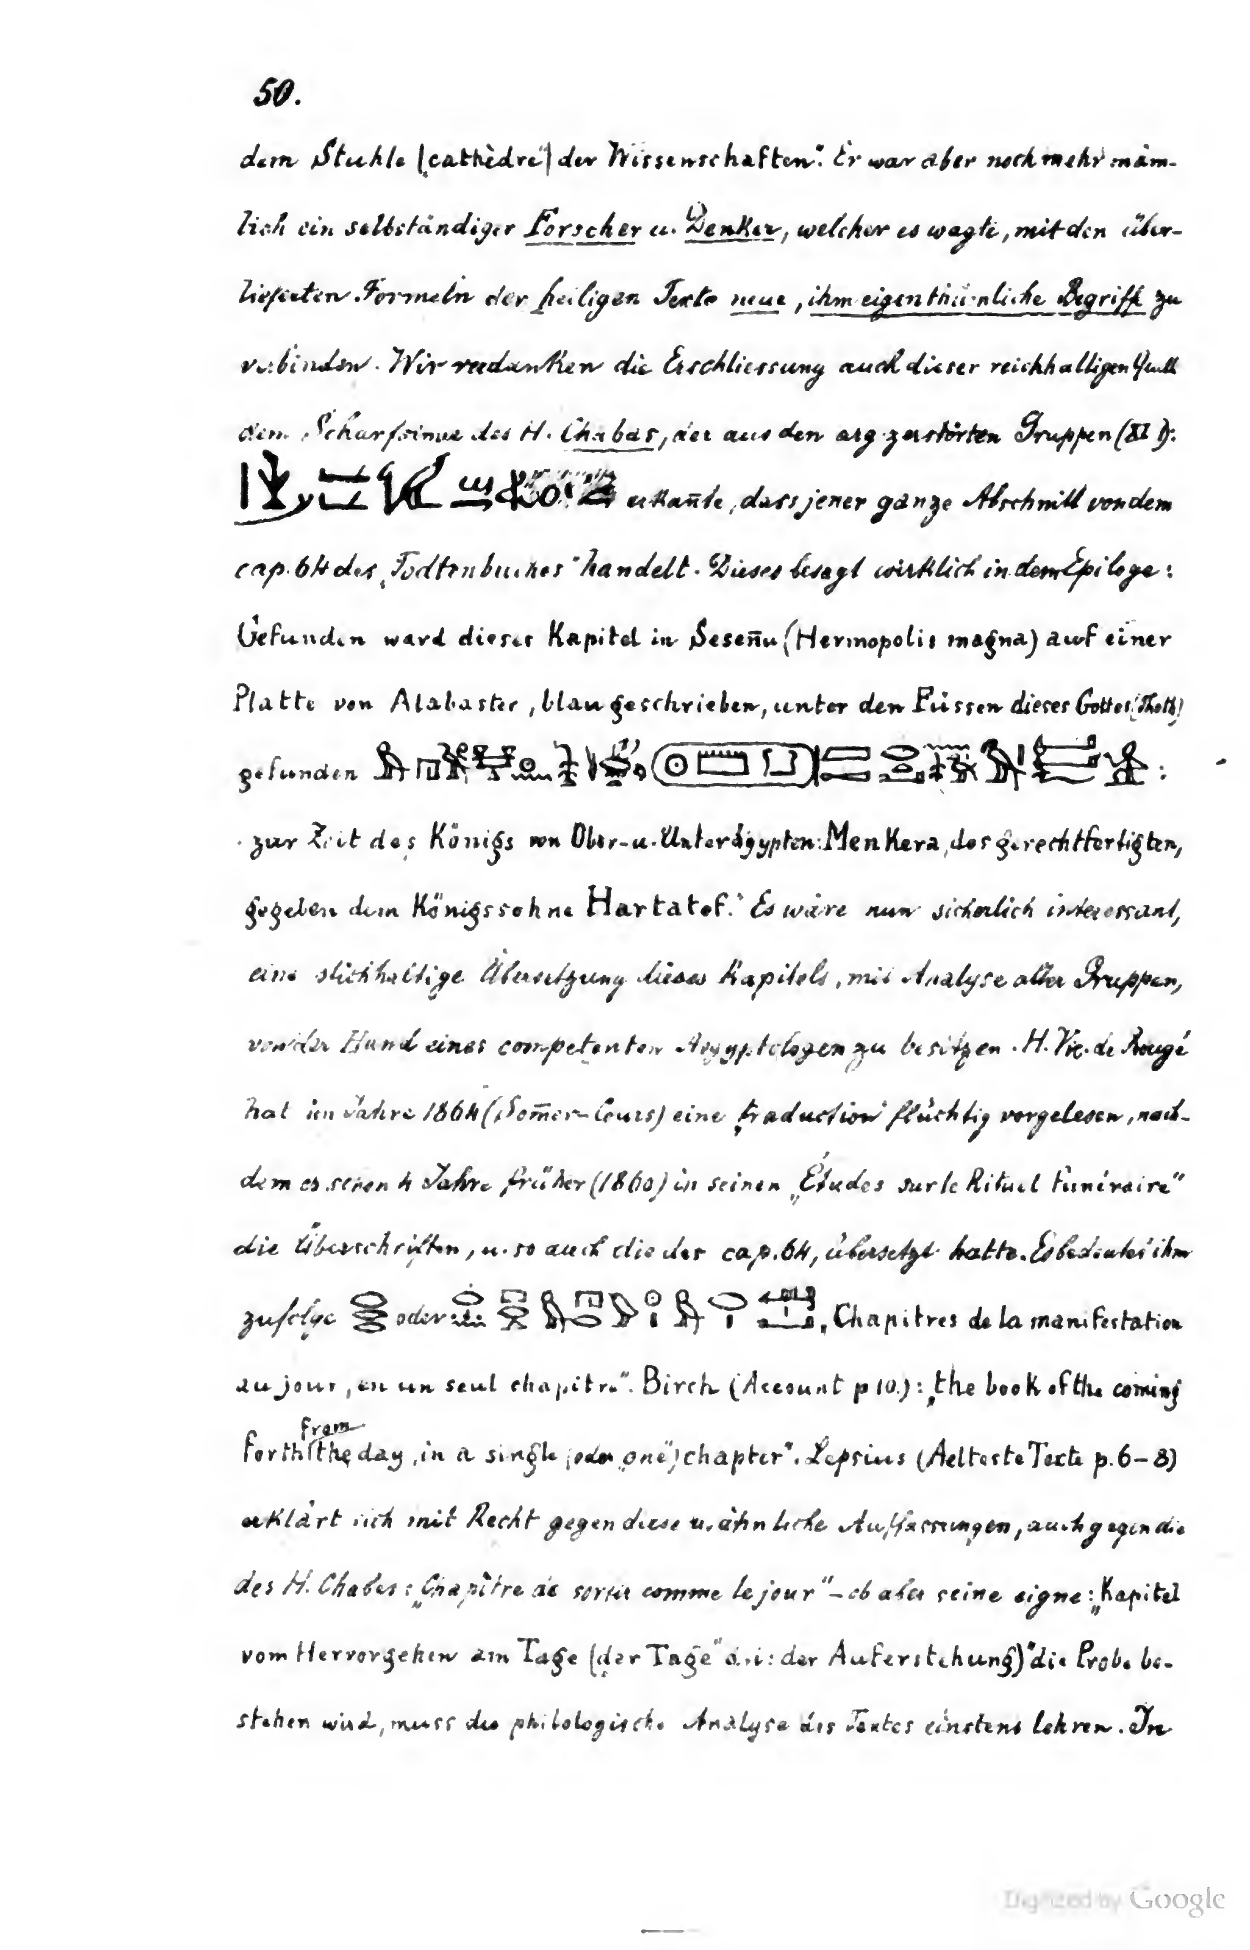 50.
dem Stuhle („cathèdre“) der Wissenschaften“. Er war aber noch mehr näm-
lich ein selbständiger Forscher u. Denker, welcher es wagte, mit den über-
lieferten Formeln der heiligen Texte neue, ihm eigenthümliche Begriffe zu
verbinden. Wir verdanken die Erschliessung auch dieser reichhaltigen Quelle
dem Scharfsinne des H. Chabas, der aus den arg zerstörten Gruppen (XI 1):
erkan̄te, dass jener ganze Abschnitt von dem
cap. 64 des „Todtenbuches“ handelt. Dieses besagt wirklich in dem Epiloge:
Gefunden ward dieses Kapitel in Sesen̄u (Hermopolis magna) auf einer
Platte von Alabaster, blau geschrieben, unter den Füssen dieses Gottes (Thoth)
gefunden :
zur Zeit des Königs von Ober- u. Unterägypten: Menkera, des gerechtfertigten,
gegeben dem Königssohne Hartatef.“ Es wäre nun sicherlich interessant,
eine stichhaltige Übersetzung dieses Kapitels, mit Analyse aller Gruppen,
von der Hand eines competenten Aegyptologen zu besitzen. H. Vic. de Rougé
hat im Jahre 1864 (Som̄er-Cours) eine „traduction“ flüchtig vorgelesen, nach-
dem es schon 4 Jahre früher (1860) in seinen „Études sur le Rituel funéraire“
die Überschriften, u. so auch die des cap. 64, übersetzt hatte. Es bedeutet ihm
zufolge oder „Chapitres de la manifestation
au jour, en un seul chapitre“. Birch (Account p 10.): „the book of the coming
forth from the day, in a single (oder „one“) chapter“. Lepsius (Aelteste Texte p. 6–8)
erklärt sich mit Recht gegen diese u. ähnliche Auffassungen, auch gegen die
des H. Chabas: „Chapître de sortir comme le jour“ – ob aber seine eigne: „Kapitel
vom Hervorgehen am Tage („der Tage“ d. i: der Auferstehung)“ die Probe be-
stehen wird, muss die philologische Analyse des Textes einstens lehren. In
Digitized by Google